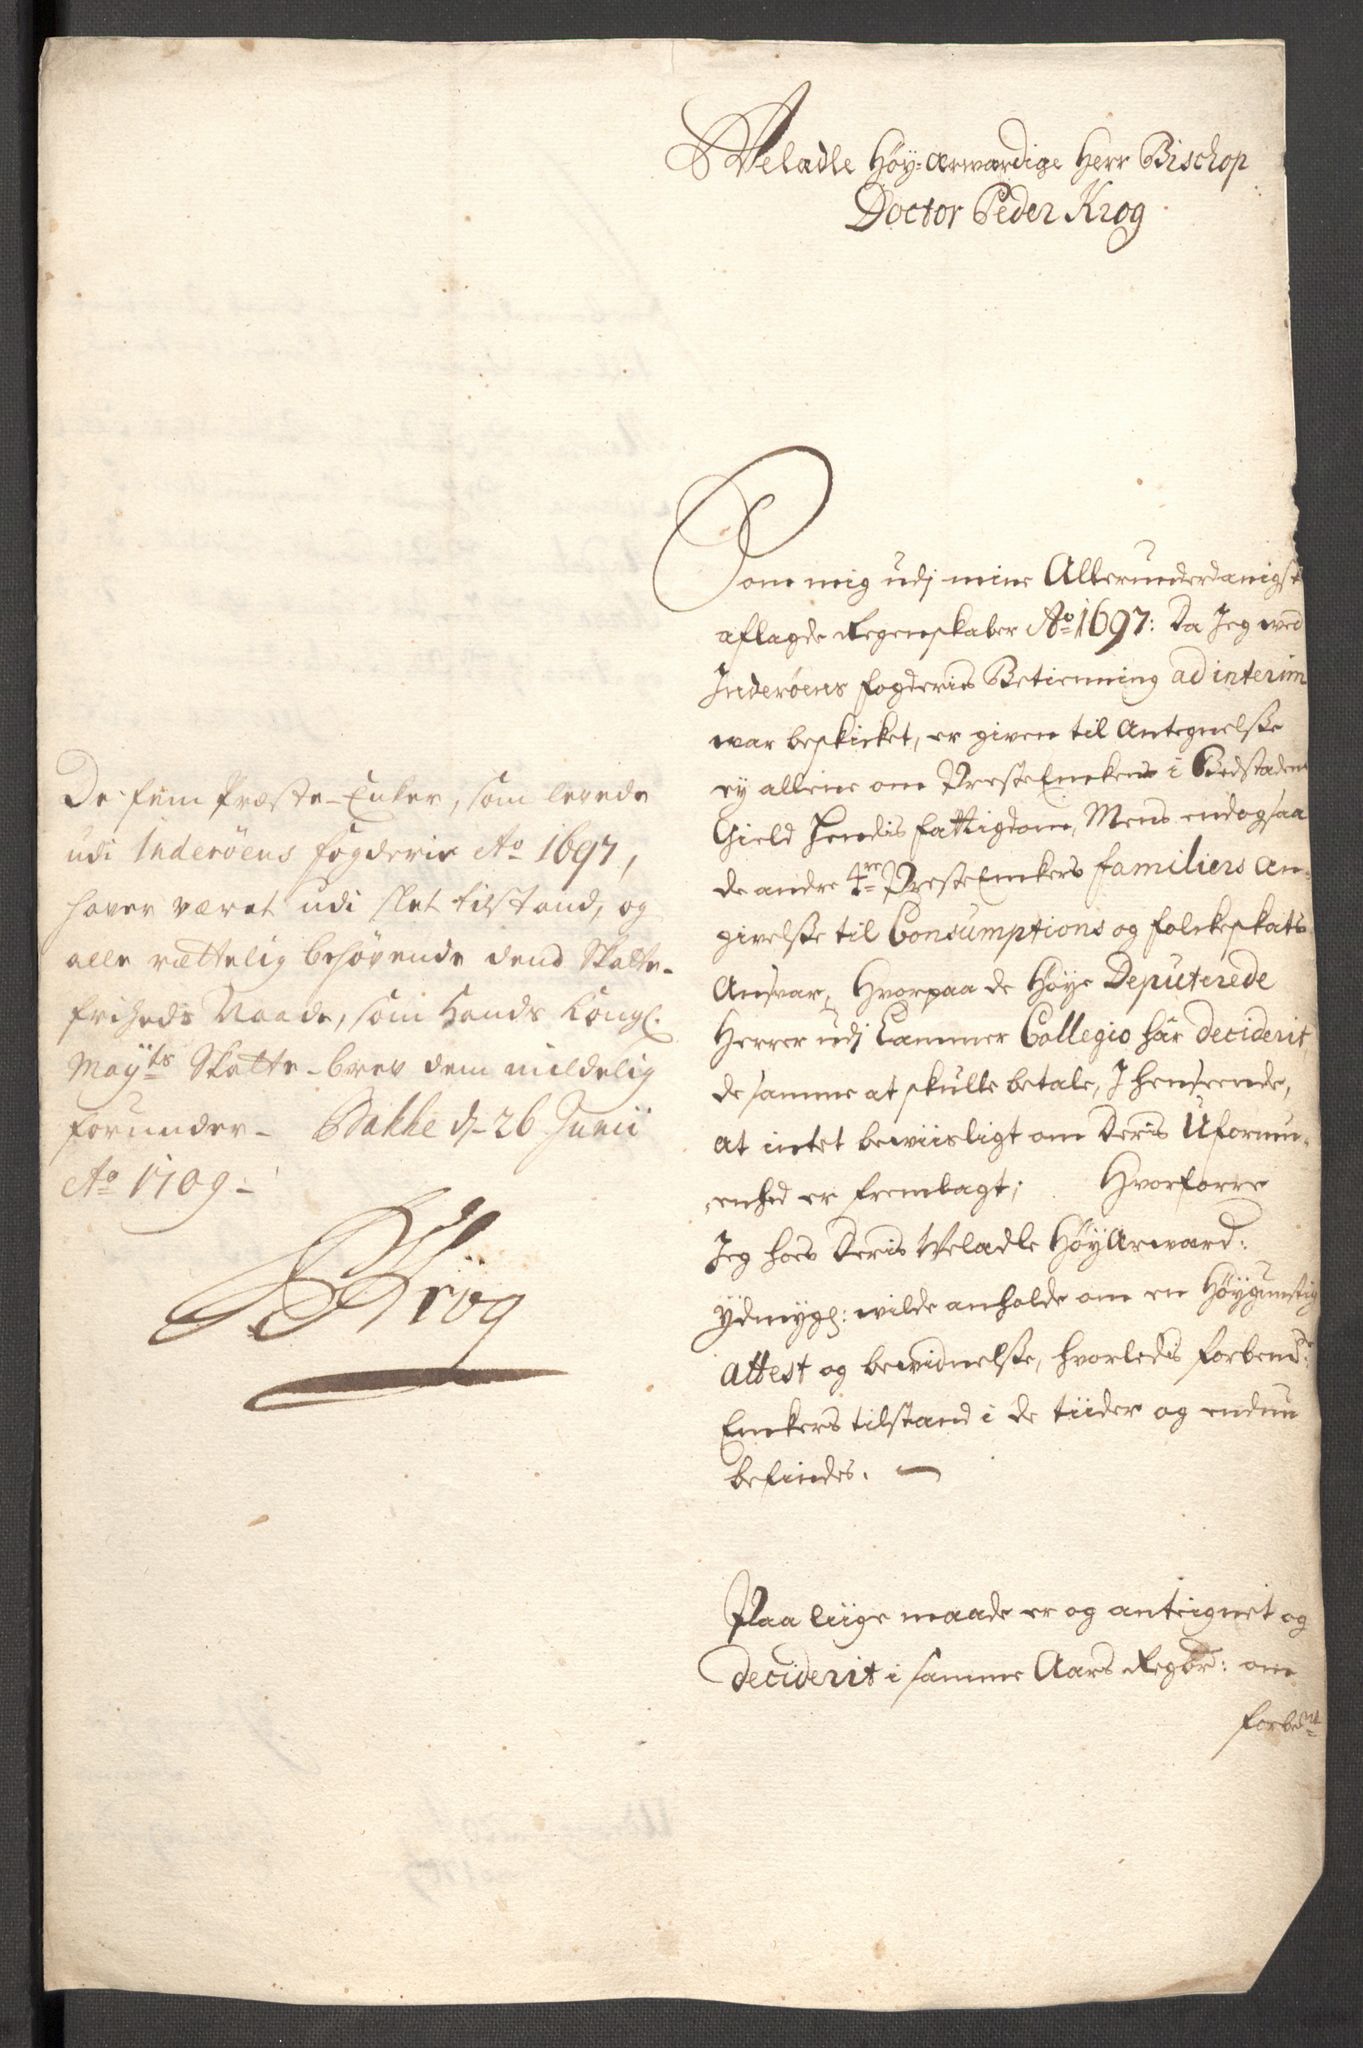 Velædle Høy-ærwærdige Herr Bischop
Doctor Peder Krog
Som mig udj mine Allerunderdanigst
aflagde Regenskaber Ao 1697: Da Jeg wed
Inderøens fogderies Betienning ad interim
war beskicket, er given til Antegnelsse
ey allene om PresteEnckens i Bedstaden
Gield hendis fattigdom, Mens endogsaa
de andre 4re PresteEnckers familiers An-
givelsse til Consumptions og folckeskats
Ansvar, Hvorpaa de Høye Deputerede
Herrer udj Cammer Collegio har deciderit,
de samme at skulle betale, J henseende,
at intet beviisligt om Deris Uformu-
enhed er fremlagt; Hvorforre
Jeg hoes Deris Velædle HøyÆrwærd:
Ydmygl: wilde anholde om en Høygunstig
Attest og bewidnelsse, hvorledis forbemd:te
Enckers tilstand i de tiider og endnu
befindes.
Paa liige maade er og anteignet og
deciderit i samme Aars Regbr: om
forbemt
De fem Præste-Enker, som levede
udi Inderøens fogderie Ao 1697,
haver været udi slet tilstand, og
alle rættelig behøvende dend Skatte-
friheds Naade, som Hands Kongl.
Mayts Skatte-brev dem mildelig
forunder- Bakke d. 26 Junii
Ao 1709-
P Krog